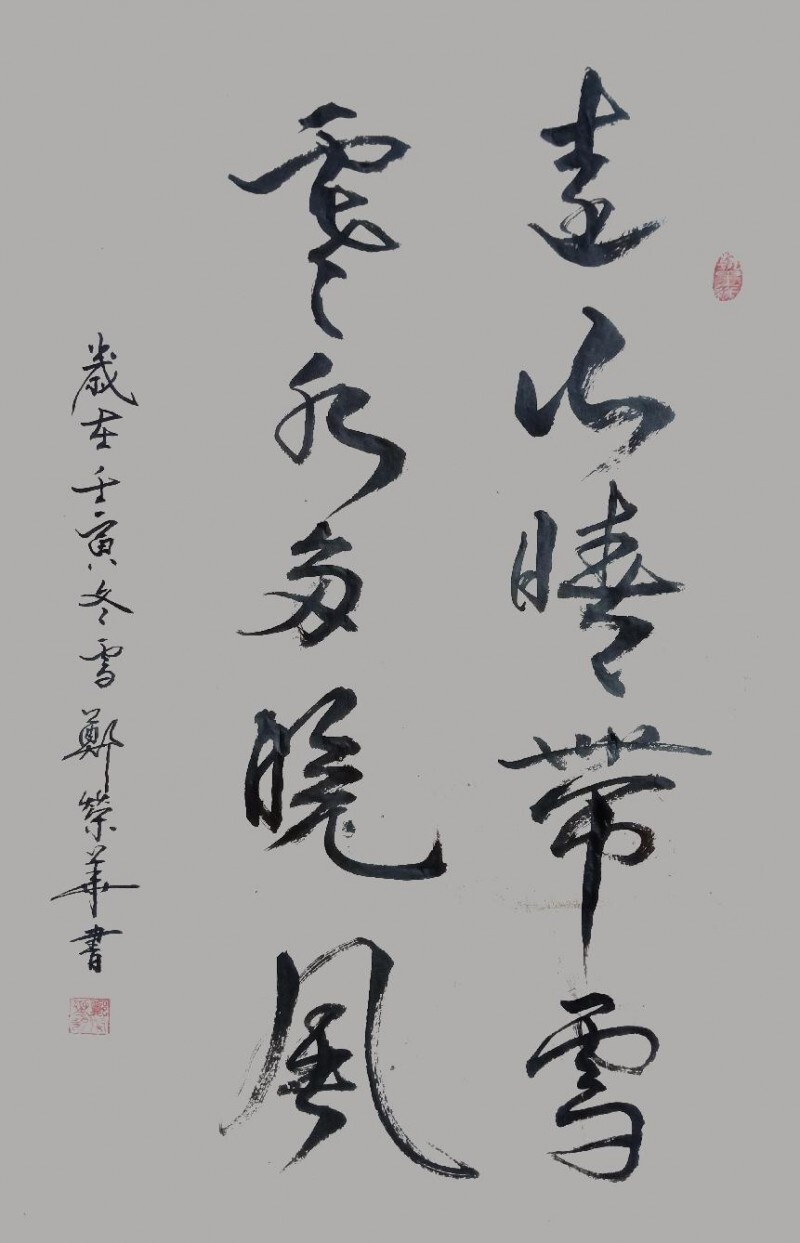 遠山晴帶雪
寒水多晚風
歲在壬寅冬雪鄭榮華書